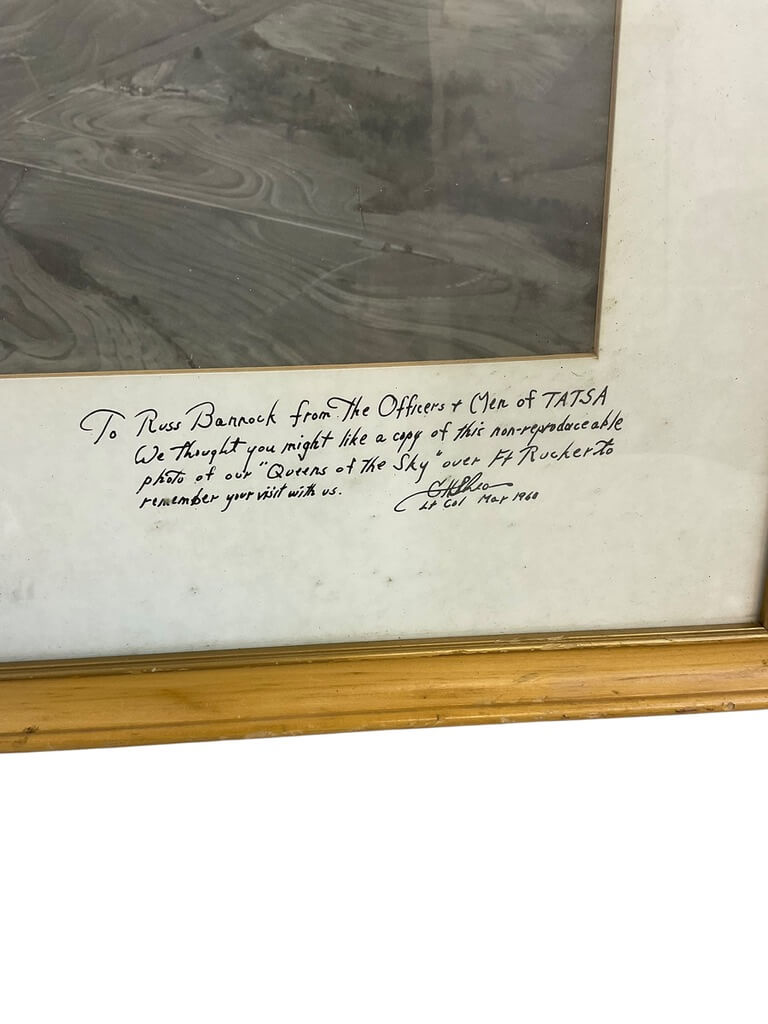 To Russ Bannock from The Officers + Men of TATSA
We thought you might like a copy of this non-reproduceable
photo of our "Queens of the Sky" over Ft Rucker to
remember your visit with us.
CHShea
Lt Col Mar 1960